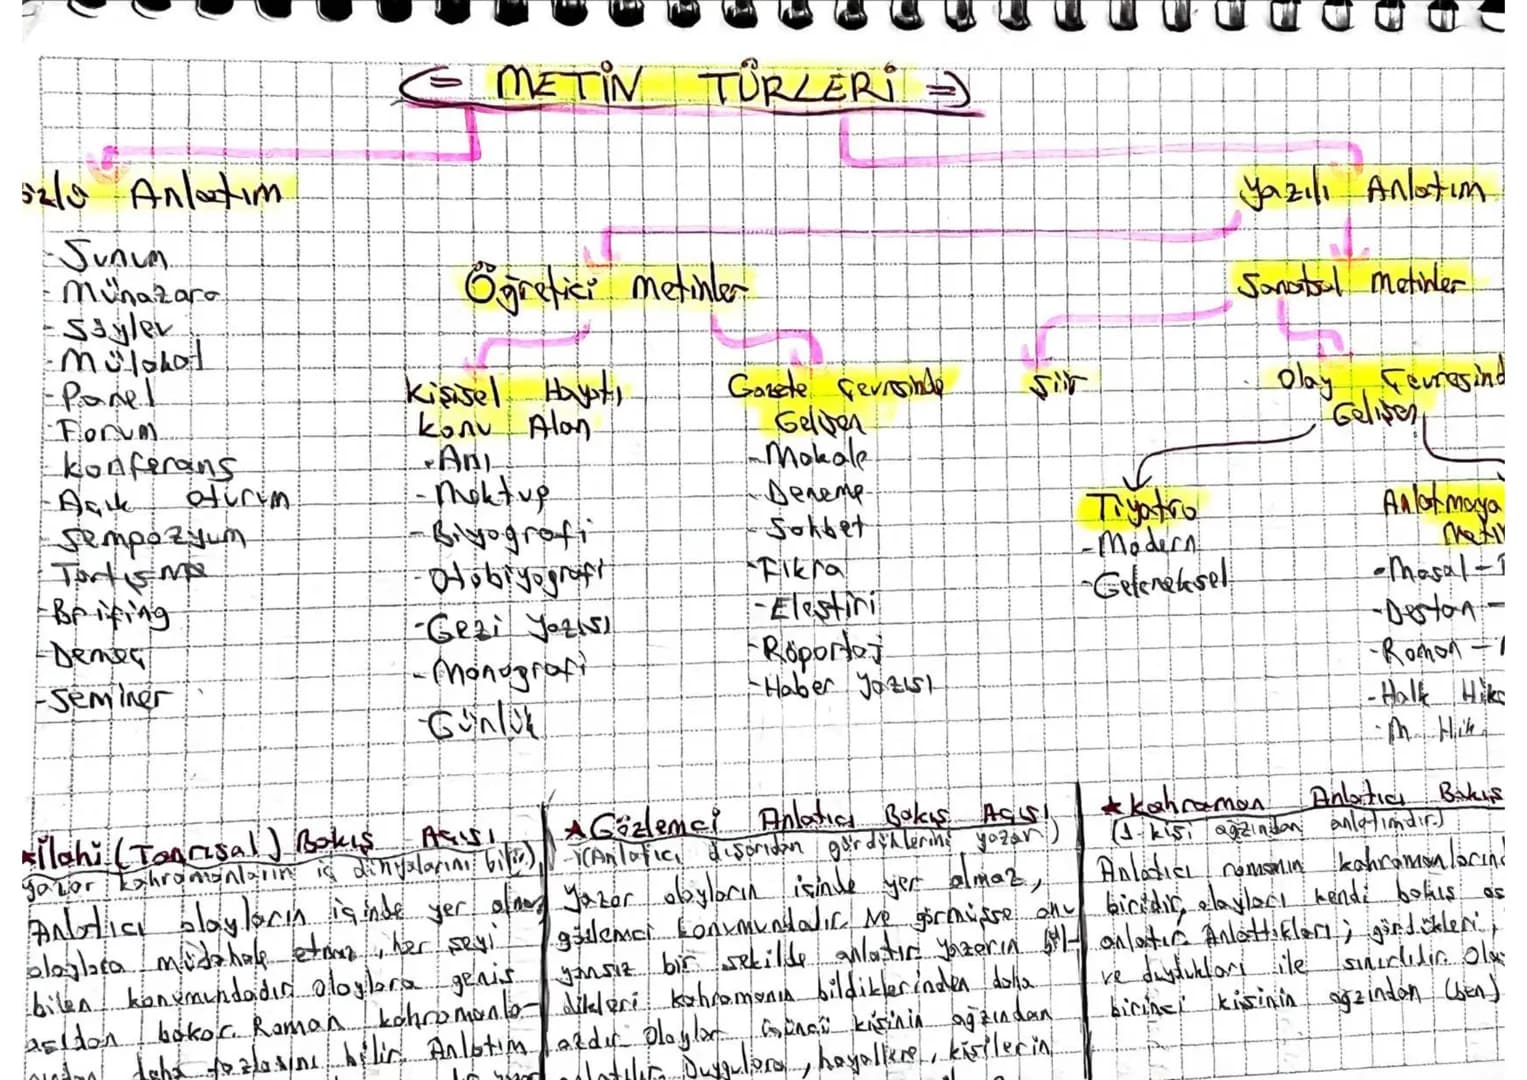 (= METİN TÜRLERİ =)
Anlatım
Yazılı Anlatım
-Sunum
-Münazara
-Söylev
-Mülakat
-Panel
-Forum
-Konferans
-Açık oturum
-Sempozyum
-Tartışma
-Brifing
-Demeç
-Seminer
Öğretici Metinler
Sanatsal Metinler
Kişisel Hayatı
Konu Alan
-Anı
-Mektup
-Biyografi
-Otobiyografi
-Gezi Yazısı
-Monografi
-Günlük
Gazete Çevresinde
Gelişen
-Makale
-Deneme
-Sohbet
-Fıkra
-Eleştiri
-Röportaj
-Haber Yazısı
Şiir
Olay Çevresind
Gelişen
Tiyatro
-Modern
-Geleneksel
Anlatmaya
Metin
-Masal-
-Destan-
-Roman-
-Halk Hika
-M. Hik.
★İlahi (Tanrısal) Bakış Açısı
Yazar kahramanların iç dünyalarını bilir)
Anlatıcı olayların içinde yer almaz
olaylara müdahale etmez, her şeyi
bilen konumundadır. Olaylara geniş
açıdan bakar. Roman kahramanla-
daha fazlasını bilir. Anlatım
★Gözlemci Anlatıcı Bakış Açısı
(Anlatıcı dışarıdan gördüklerini yazar)
Yazar olayların içinde yer almaz,
gözlemci konumundadır. Ne görmüşse onu
yansız bir şekilde anlatır. Yazarın bil-
dikleri kahramanın bildiklerinden daha
azdır. Olaylar üçüncü kişinin ağzından
anlatılır. Duygulara, hayallere, kişilerin
★Kahraman Anlatıcı Bakış
(1. kişi ağzından anlatımdır.)
Anlatıcı romanın kahramanların
biridir, olayları kendi bakış aç
anlatır. Anlattıkları; gördükleri,
ve duydukları ile sınırlıdır. Olay
birinci kişinin ağzından (ben)